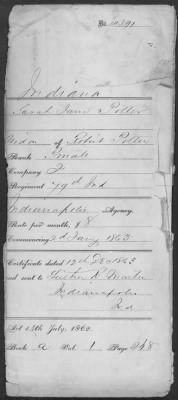 No. 10391
Indiana
Sarah Jane Potter
Widow of Robert Potter
Rank Private
Company F
Regiment 79th Ind
Indianapolis Agency.
Rate per month, $8
Commencing 2d Jany 1863
Certificate dated 12th Dec 1863
and sent to
Indianapolis
Ind
Act 14th July, 1862.
Book A Vol. 1 Page 248